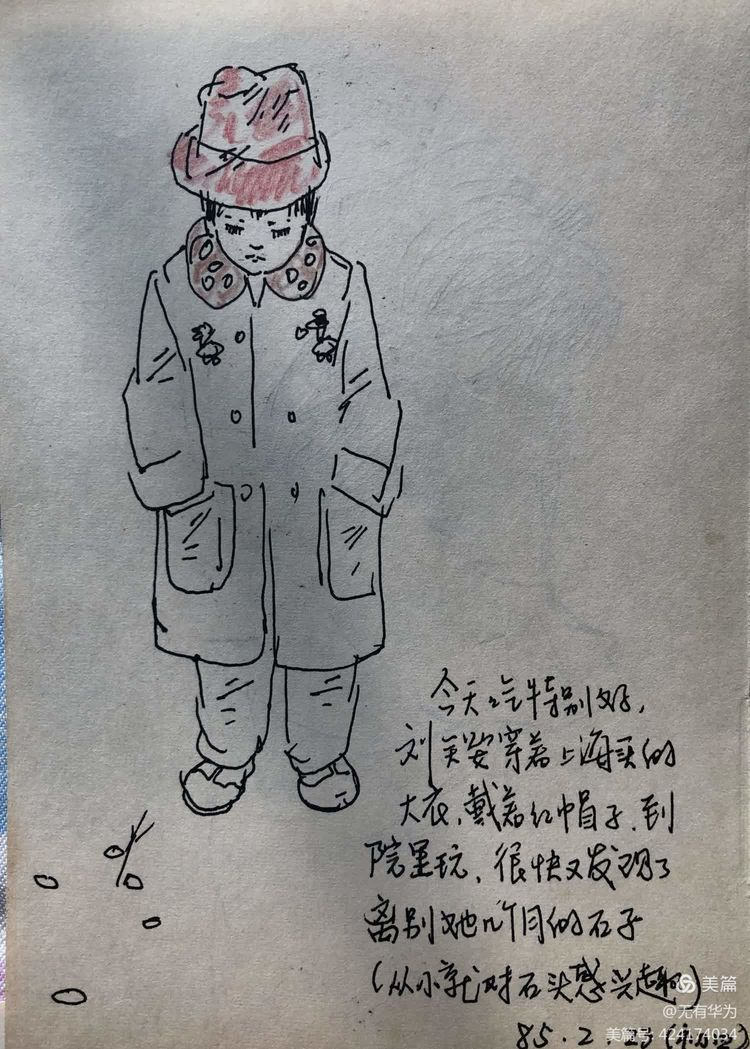 今天吃特别好,
刘天安穿着上海买的
大衣,戴着红帽子.到
院里玩,很快又发现了
离别她几个月的石子
(从小就对石头感兴趣)
85.2
美篇
@无有华为
美篇号 424174034